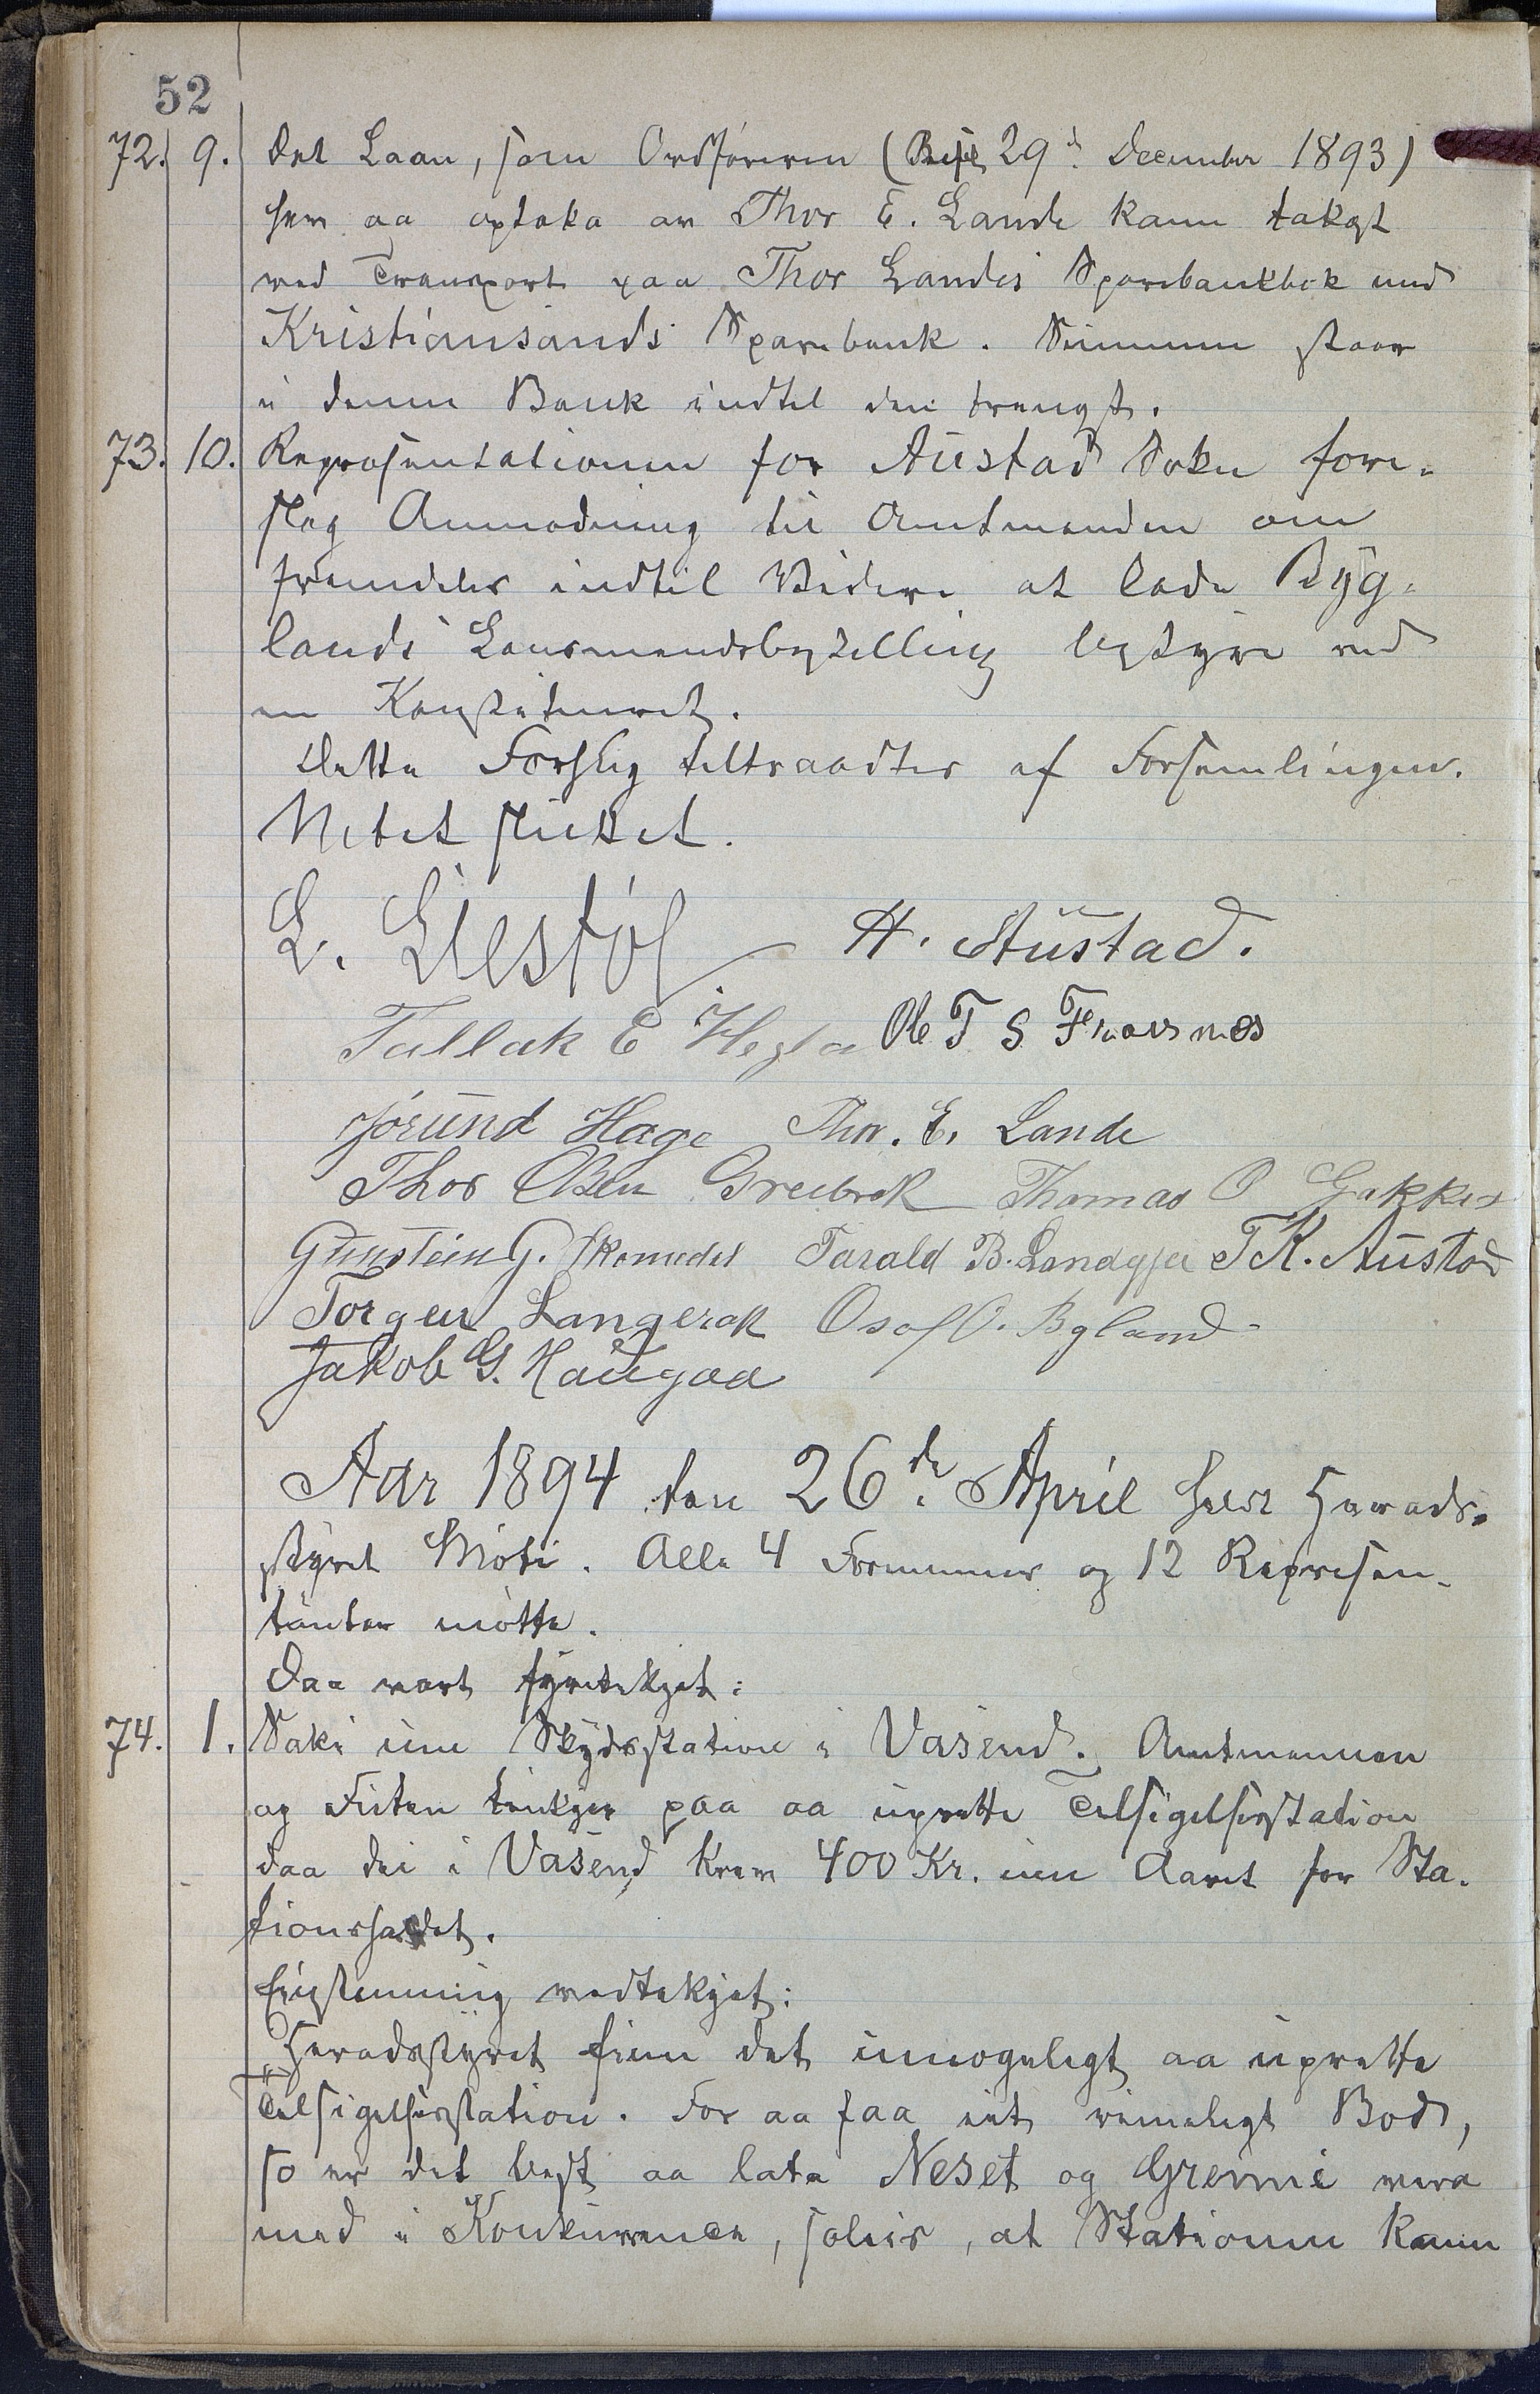 52
72. 9. Det Laan, som Ordføraren (29d. December 1893)
hev aa optaka av Thor E. Lande kann takast
ved Transport paa Thor Landes Sparebankbok med
Kristiansands Sparebank. Summen staar
i denne Bank indtil den trengst.
73. 10. Repræsentationen for Austad Sokn fore-
slog Anmodning til Amtmanden om
fremdeles indtil Videre at lade Byg-
lands Lensmandsbestilling bestyre ved
en Konstitueret.
Dette Forslag tiltraadtes af Forsamlingen.
Møtet slutset.
L. Liestøl H. Austad.
Tallak E Hegla Ole T S Frøysnes
Jørund Hage Thor. E. Lande
Thor Olsen Greibrok Thomas O Gakkes
Gunstein G. Skomedal Tarald B. Landgja T K. Austad
Torgeir Langerak Osof O. Bygland
Jakob G. Haugaa
Aar 1894 den 26de April heldt Herads-
styret Møte. Alle 4 Formenner og 12 Represen-
tantar møtte.
Daa vart fyreteket:
74. 1. Saki um Skydsstation i Vasend. Amtmannen
og Futen tenkjer paa aa uprette Tilsigelsesstation
daa dei i Vasend krev 400 Kr. um Aaret for Sta-
tionshaldet.
Einstemmig vedtekjet:
Heradsstyret finn det umogelegt aa uprette
Tilsigelsesstation. For aa faa eit rimelegt Bod,
so er det best aa lata Neset og Greimi vera
med i Konkurrence, soleis, at Stationen kann